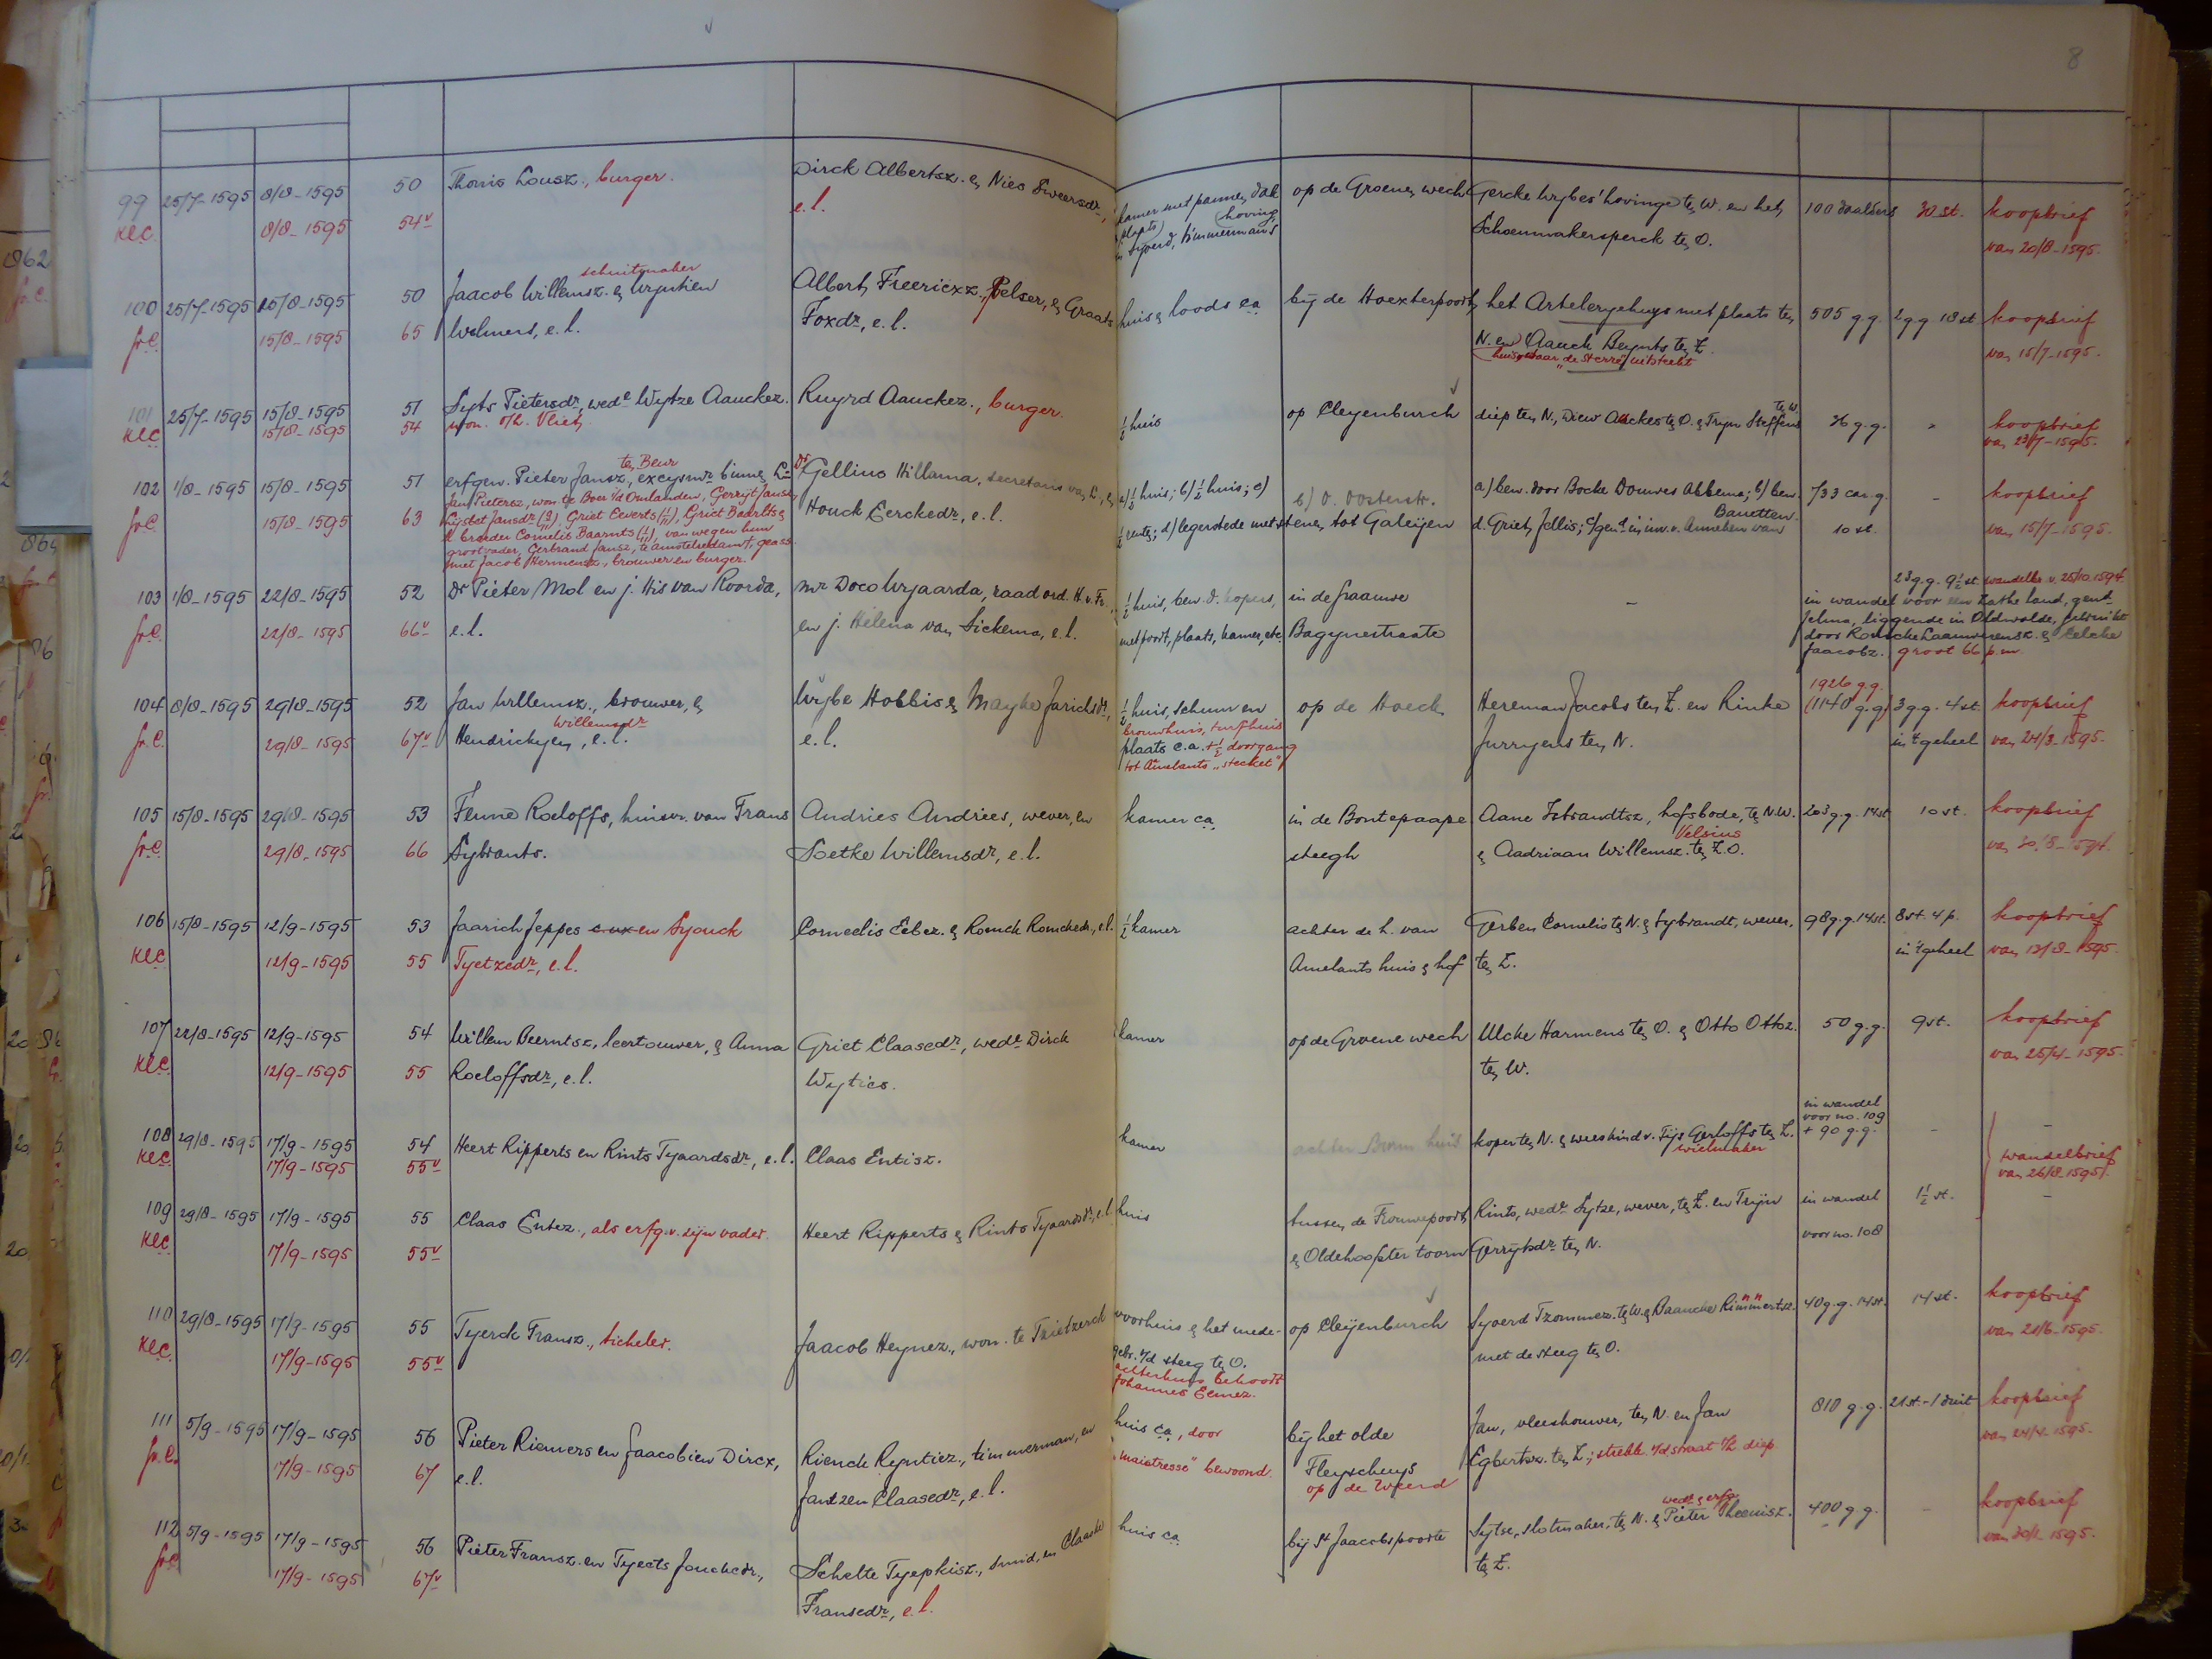 8
99 25/7-1595 8/8-1595 50 Thonis Lousz., burger. Dirck Albertsz. en Nies Sweersdr., kamer met pannen dak op de Groenen wech Gercke Wybes' hovinge ten W. en het 100 daalders 30 st. koopbrief
KLC 8/8-1595 54v e.l. plaats hoving Schoenmakersperck ten O. van 20/8-1595.
Sjoerd, timmermans
schuitmaker
100 25/7-1595 15/8-1595 50 Jaacob Willemsz. en Wyntien Albert Freericxz., pelser, en Graats huis en loods c.a. bij de Hoexterpoort het Arteleryehuys met plaats ten 505 g.g. 2 g.g. 18 st koopbrief
gr.C. 15/8-1595 65 Wolmers, e.l. Foxdr, e.l. N. en Aanck Beynts ten Z. van 15/7-1595.
huis waar "de Sterre" uitsteekt
101 25/7-1595 15/8-1595 51 Syts Pietersdr, wede Wytze Aanckez. Ruyrd Aanckez., burger. ½ huis op Cleyenburch diep ten N., Dieu Auckes ten O. en Tryn Steffens ten W. 36 g.g. - koopbrief
KLC 15/8-1595 54 won. o/h. Vliet van 23/7-1595.
ten Beur
102 1/8-1595 15/8-1595 51 erfgen. Pieter Jansz., excysmr. binnen L. Dr Gellius Hillama, secretaris van L., en a) ½ huis; b) ½ huis; c) b) O. Oosterstr. a) bew. door Bocke Douwes Abbema; b) bew. 733 car. g. - koopbrief
Jan Pietersz, won. te Boer i/d Omlanden, Gerryt Jansz,
gr.C 15/8-1595 63 Lysbet Jansdr, Griet Eewerts, Griet Baarnts en Houck Eerckedr., e.l. ½ rente; d) legerstede met stenen tot Galeijen d. Griet Jellis; c/gend. in inv. v. Anneken van Banetten. 10 st. van 15/7-1595.
br broeder Cornelis Baarnts, van wegen hun
grootvader, Gerbrand Jansz, te Amstelredam, geass.
met Jacob Hermensz, brouwer en burger.
103 1/8-1595 22/8-1595 52 Dr Pieter Mol en j. His van Roorda, mr Doco Wyaarda, raad ord. H.v.Fr. ½ huis, bew. d. kopers, in de fraauwe - 23 g.g. 9½ st. wandelbr. v. 25/10 1594.
in wandel voor een Zathe land, gent.
gr.C. 22/8-1595 66v e.l. en j. Helena van Sickema, e.l. met poort, plaats, kamer, etc. Bagynestraate Jelma, liggende in Oldwolde, gebruikt
door Roelcke Laauwrensz. en Eelcke
Jaacobz. groot 66 p.m.
104 8/8-1595 29/8-1595 52 Jan Willemsz., brouwer, en Wybe Hobbis en Mayke Jarichsdr., ½ huis, schuur en op de Hoeck Hereman Jacobs ten Z. en Rinke 1926 g.g. (1140 g.g.) 3 g.g. 4 st. koopbrief
Willemsdr brouwhuis, turfhuis
gr.C. 29/8-1595 67v Hendrickyen, e.l. e.l. plaats c.a. + ½ doorgang Jurryens ten N. in 't geheel van 24/3-1595.
tot Amelants "stecket"
105 15/8-1595 29/8-1595 53 Fenne Roeloffs, huisvr. van Frans Andries Andries, wever, en kamer c.a. in de Bontepaape Aane Isbrandtsz, hofsbode, ten N.W. 203 g.g. 14 st 10 st. koopbrief
Velsius
gr.C. 29/8-1595 66 Sybrants. Soetke Willemsdr, e.l. steegh en Aadriaan Willemsz. ten Z.O.
106 15/8-1595 12/9-1595 53 Jaarich Jeppes c.ux en Syouck Corneelis Eebez. en Romck Romckedr., e.l. ½ kamer achter de h. van Gerben Cornelis ten N. en Sybrandt, wever, 98 g.g. 14 st. 8 st. 4 p. koopbrief
KLC 12/9-1595 55 Tyetzedr, e.l. Amelants huis en hof ten Z. in 't geheel van 13/8-1595.
107 22/8-1595 12/9-1595 54 Willem Beerntsz, leertouwer, en Anna Griet Claasedr, wede Dirck kamer op de Groene wech Ulcke Harmens ten O. en Otto Ottoz. 50 g.g. 9 st. koopbrief
KLC 12/9-1595 55 Roeloffsdr, e.l. Wyties. ten W. van 25/4-1595.
108 29/8-1595 17/9-1595 54 Heert Ripperts en Rints Tyaardsdr, e.l. Claas Entisz. kamer koper ten N. en weeskind v. Tijs Gerloffs ten Z. in wandel voor no. 109 + 90 g.g. - -
KLC 17/9-1595 55v wielmaker wandelbrief
van 26/8-1595.
109 29/8-1595 17/9-1595 55 Claas Entez., als erfg. v. zijn vader. Heert Ripperts en Rints Tyaardsdr, e.l. huis tussen de Frouwepoort Rints, wedr Sytze, wever, ten Z. en Trijn in wandel 1½ st. -
KLC 17/9-1595 55v en Oldehoofster toorn Gerrytsdr ten N. voor no. 108
110 29/8-1595 17/9-1595 55 Tyerck Fransz., ticheler. Jaacob Heynez., won. te Trietzerck voorhuis en het mede- op Cleijenburch Syoerd Tzommez. ten W. en Baaucke Rimmertsz. 40 g.g. 14 st. 14 st. koopbrief
KLC 17/9-1595 55v gebr. v/d steeg ten O. met de steeg ten O. van 21/6-1595.
achterhuys behoort
Johannes Eemez.
111 5/9-1595 17/9-1595 56 Pieter Riemers en Jaacobien Dircx, Rienck Reyntiez., timmerman, en huis c.a., door bij het olde Jan, vleeshouwer, ten N. en Jan 810 g.g. 21 st.-1 duit koopbrief
gr.C. 17/9-1595 67 e.l. Jantzen Claasedr, e.l. "maistresse" bewoond. Fleyschuys Egbertsz. ten Z.; strekk. v/d straat t/h diep.
op de Weerd
112 5/9-1595 17/9-1595 56 Pieter Fransz. en Tyeets Jouckedr., Schelte Tyepkisz., smid, en Claaske huis c.a. bij St Jaacobspoorte Sytse, slotmaker, ten N. en wede en erfg. Pieter Theunisz. 400 g.g. - koopbrief
gr.C 17/9-1595 67v Fransedr, e.l. ten Z.